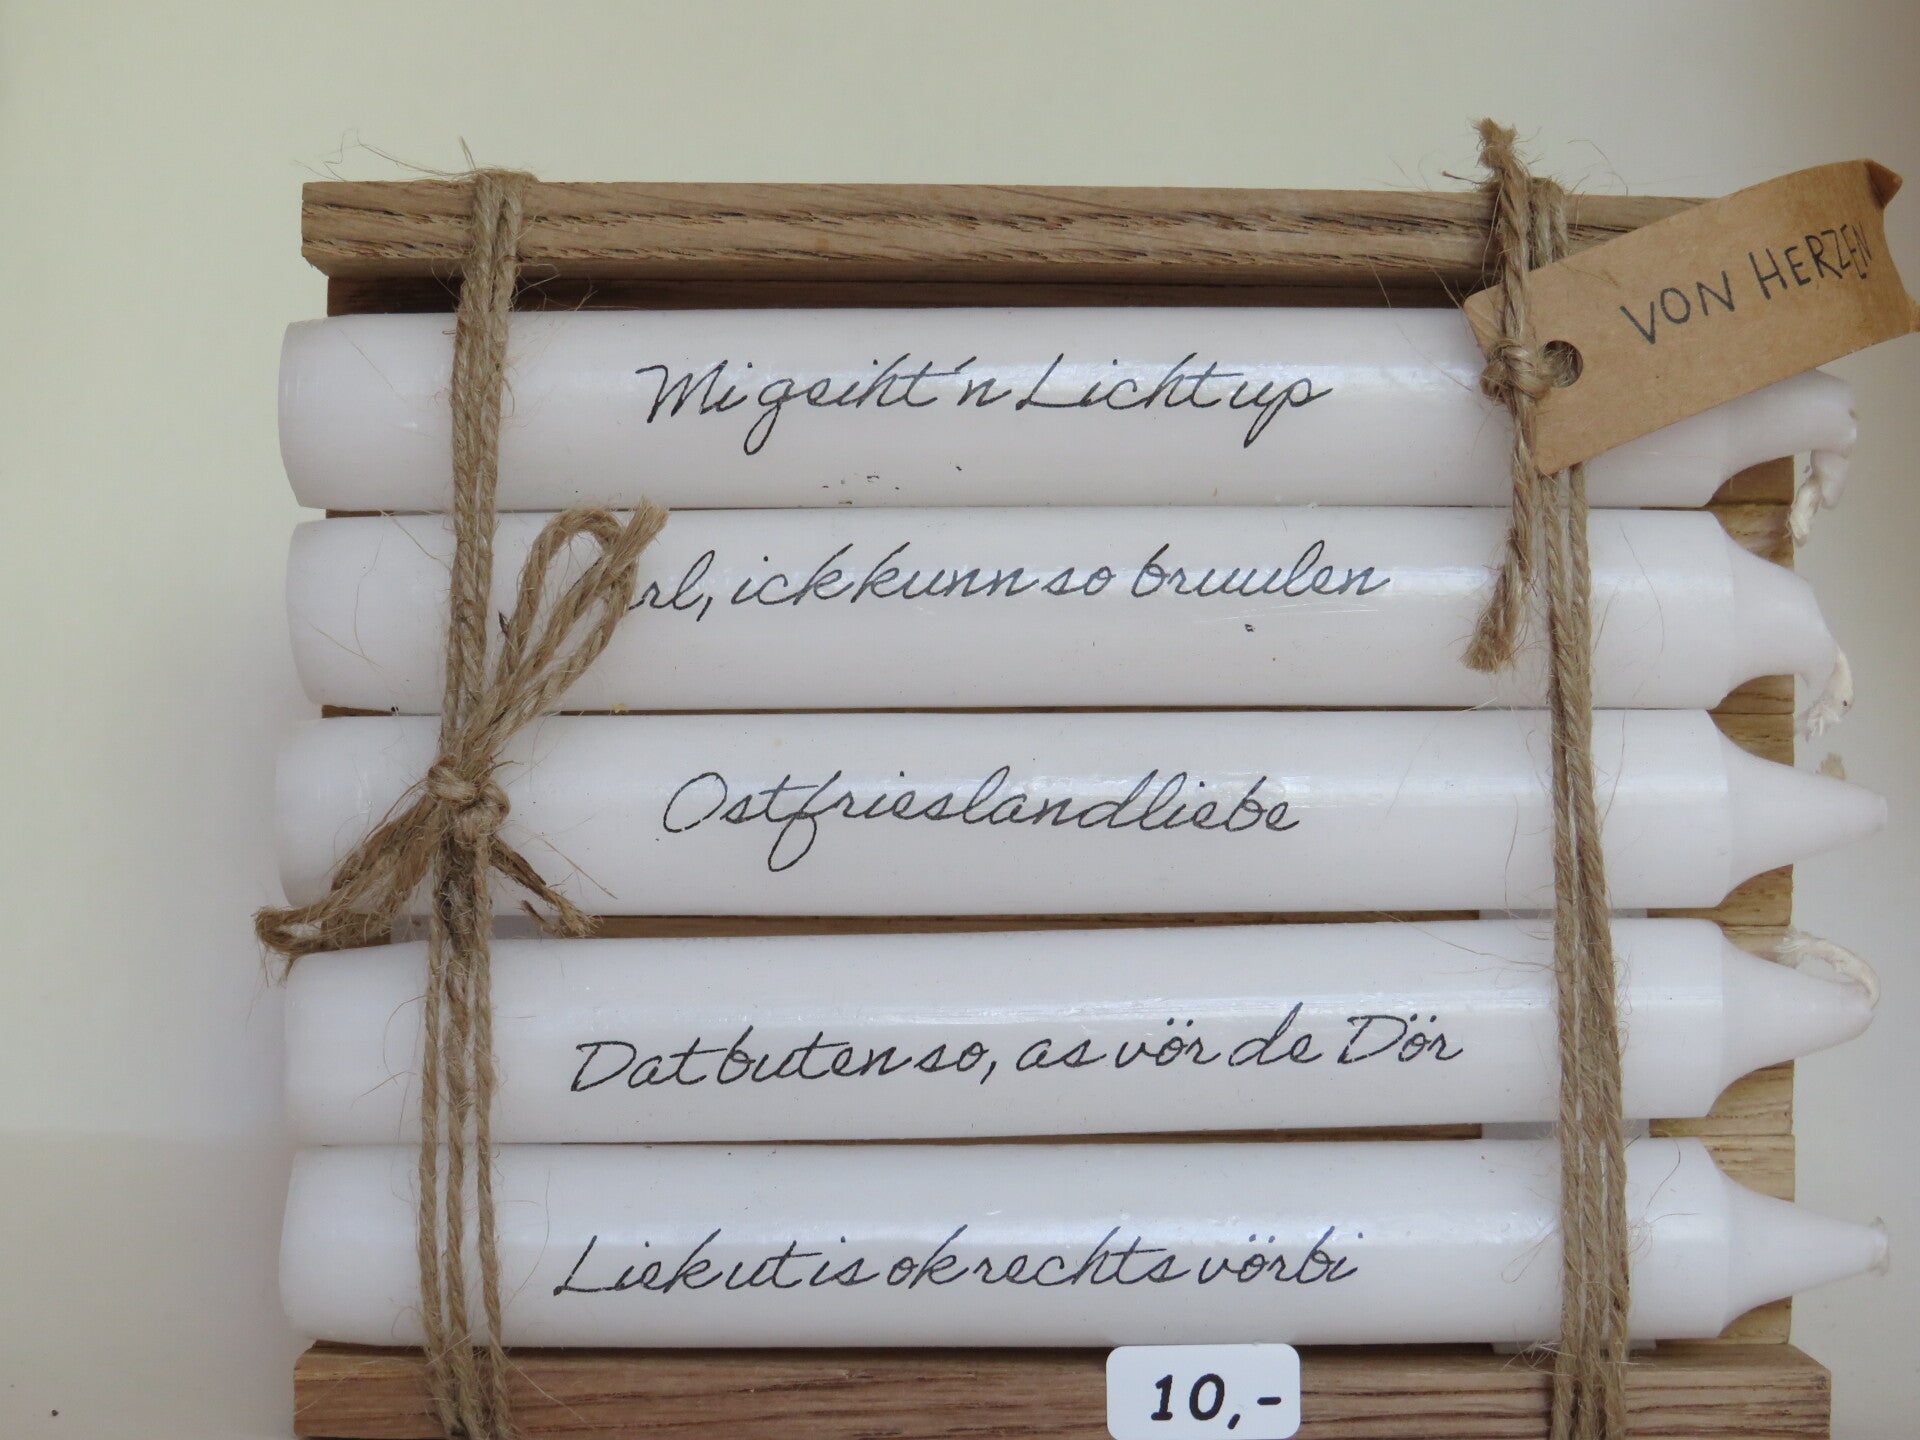 VON HERZEN
Mi geiht'n Licht up
rl, ick kunn so bruulen
Ostfrieslandliebe
Dat buten so, as vör de Dör
Liek ut is ok rechts vörbi
10,-